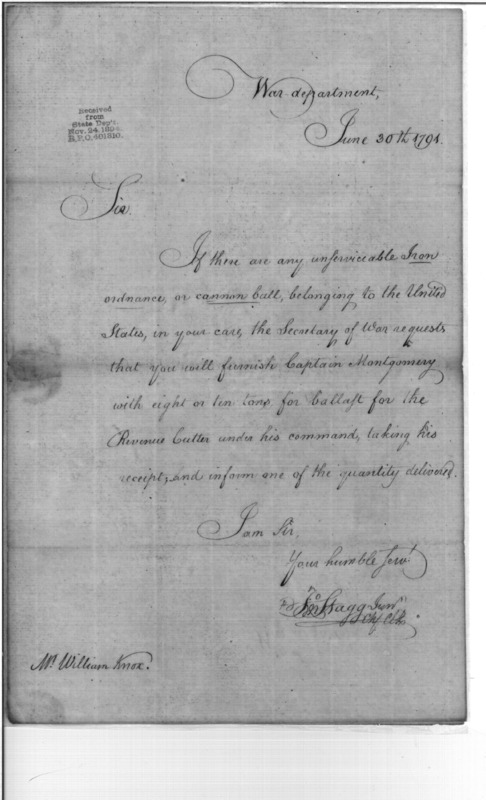 Received
from
State Dep't.
Nov. 24, 1894.
R.P.O. 401310.
War department,
June 30th 1791.
Sir.
If there are any unserviceable Iron
ordnance, or cannon ball, belonging to the United
States, in your care, the Secretary of War requests
that you will furnish Captain Montgomery
with eight or ten tons, for ballast for the
Revenue Cutter under his command, taking his
receipt; and inform me of the quantity delivered.
I am Sir,
Your humble Servt.
Jno Stagg Junr
Ch Clk
Mr. William Knox.